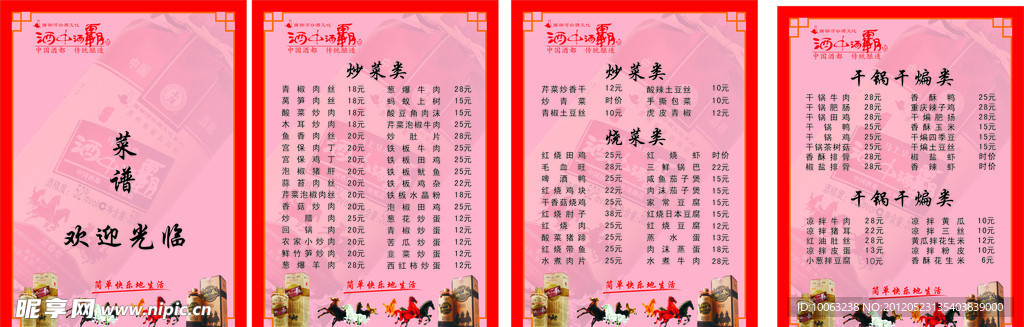 酒中酒霸
中国酒都 传统酿造
菜
谱
欢迎光临
昵享网 www.nipic.cn
酒中酒霸
中国酒都 传统酿造
炒菜类
青椒肉丝 18元 葱爆牛肉 28元
莴笋肉丝 18元 蚂蚁上树 15元
酸菜炒肉 18元 酸豆角肉沫 15元
木耳炒肉 18元 芹菜泡椒牛肉 25元
鱼香肉丝 20元 炒肚片 28元
宫保肉丁 20元 铁板牛肉 25元
宫保鸡丁 20元 铁板田鸡 25元
泡椒猪肝 20元 铁板鱿鱼 25元
蒜苔肉丝 20元 铁板鸡杂 22元
芹菜泡椒肉丝 20元 铁板水晶粉 18元
香菇炒肉 20元 泡椒田鸡 25元
炒腊肉 25元 葱花炒蛋 12元
回锅肉 20元 青椒炒蛋 12元
农家小炒肉 20元 苦瓜炒蛋 12元
鲜竹笋炒肉 20元 韭菜炒蛋 12元
葱爆羊肉 28元 西红柿炒蛋 12元
简单快乐地生活
酒中酒霸
中国酒都 传统酿造
炒菜类
芹菜炒香干 12元 酸辣土豆丝 10元
炒青菜 时价 手撕包菜 10元
青椒土豆丝 10元 虎皮青椒 12元
烧菜类
红烧田鸡 25元 红烧虾 时价
毛血旺 28元 三鲜锅巴 22元
啤酒鸭 25元 咸鱼茄子煲 15元
红烧鸡块 22元 肉沫茄子煲 15元
干香菇烧鸡 25元 家常豆腐 15元
红烧肘子 38元 红烧日本豆腐 15元
红烧肉 25元 红烧豆腐 12元
酸菜猪蹄 25元 蒸水蛋 13元
红烧带鱼 25元 肉沫蒸蛋 18元
水煮肉片 25元 水煮牛肉 28元
简单快乐地生活
酒中酒霸
中国酒都 传统酿造
干锅干煸类
干锅牛肉 28元 香酥鸭 25元
干锅肥肠 28元 重庆辣子鸡 28元
干锅田鸡 25元 干煸肥肠 28元
干锅鸭 25元 香酥玉米 15元
干锅鸡 25元 干煸四季豆 15元
干锅茶树菇 25元 干煸土豆丝 15元
香酥排骨 28元 椒盐虾 时价
椒盐排骨 28元 香辣虾 时价
干锅干煸类
凉拌牛肉 28元 凉拌黄瓜 10元
凉拌猪耳 22元 凉拌豆丝 10元
红油肚丝 28元 黄瓜拌花生米 12元
凉拌皮蛋 13元 凉拌粉皮 10元
小葱拌豆腐 10元 香酥花生米 6元
简单快乐地生活
ID:10063238 NO:20120523135403839000